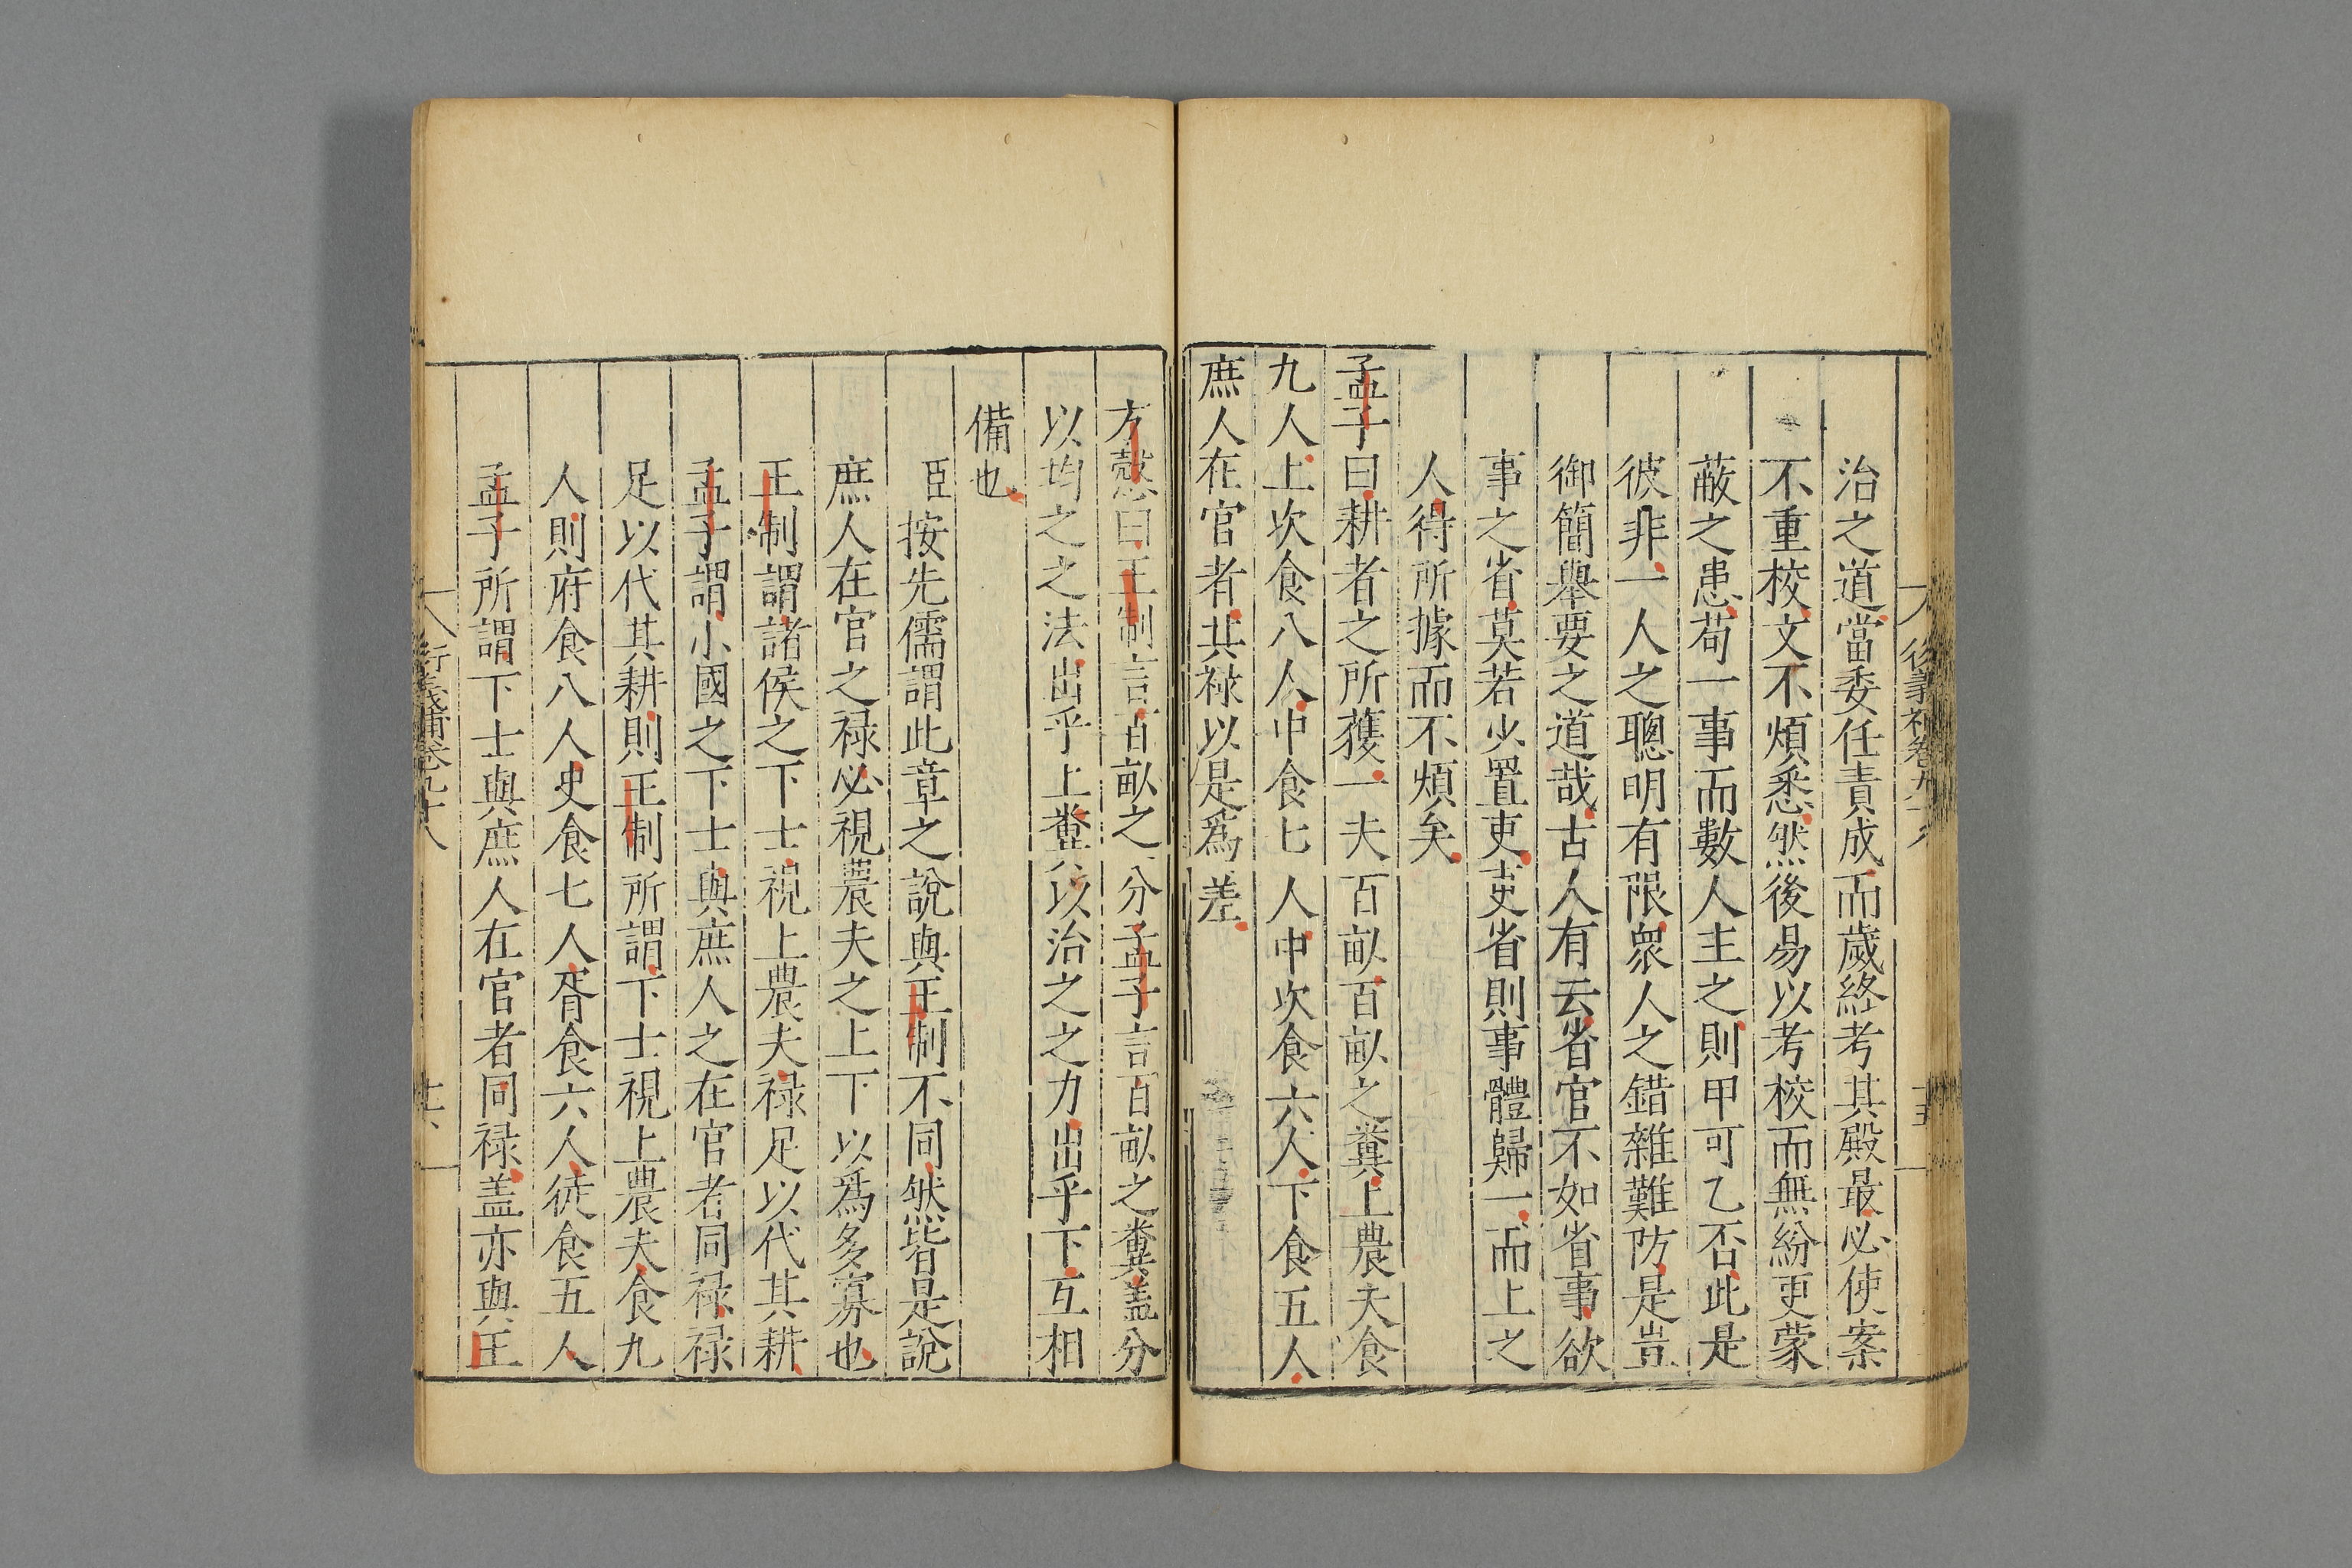 治之道當委任責成而歲終考其殿最必使案
不重校文不煩悉然後易以考校而無紛更蒙
蔽之患苟一事而數人主之則甲可乙否此是
彼非一人之聰明有限衆人之錯雜難防是豈
御簡舉要之道哉古人有云省官不如省事欲
事之省莫若少置吏吏省則事體歸一而上之
人得所據而不煩矣
孟子曰耕者之所獲一夫百畝百畝之糞上農夫食
九人上次食八人中食七人中次食六人下食五人
庶人在官者其祿以是爲差
方慤曰王制言百畝之分孟子言百畝之糞盖分
以均之之法出乎上糞以治之之力出乎下互相
備也
臣按先儒謂此章之說與王制不同然皆是說
庶人在官之祿必視農夫之上下以爲多寡也
王制謂諸侯之下士視上農夫祿足以代其耕
孟子謂小國之下士與庶人之在官者同祿祿
足以代其耕則王制所謂下士視上農夫食九
人則府食八人史食七人胥食六人徒食五人
孟子所謂下士與庶人在官者同祿盖亦與王
衍義補卷九十八